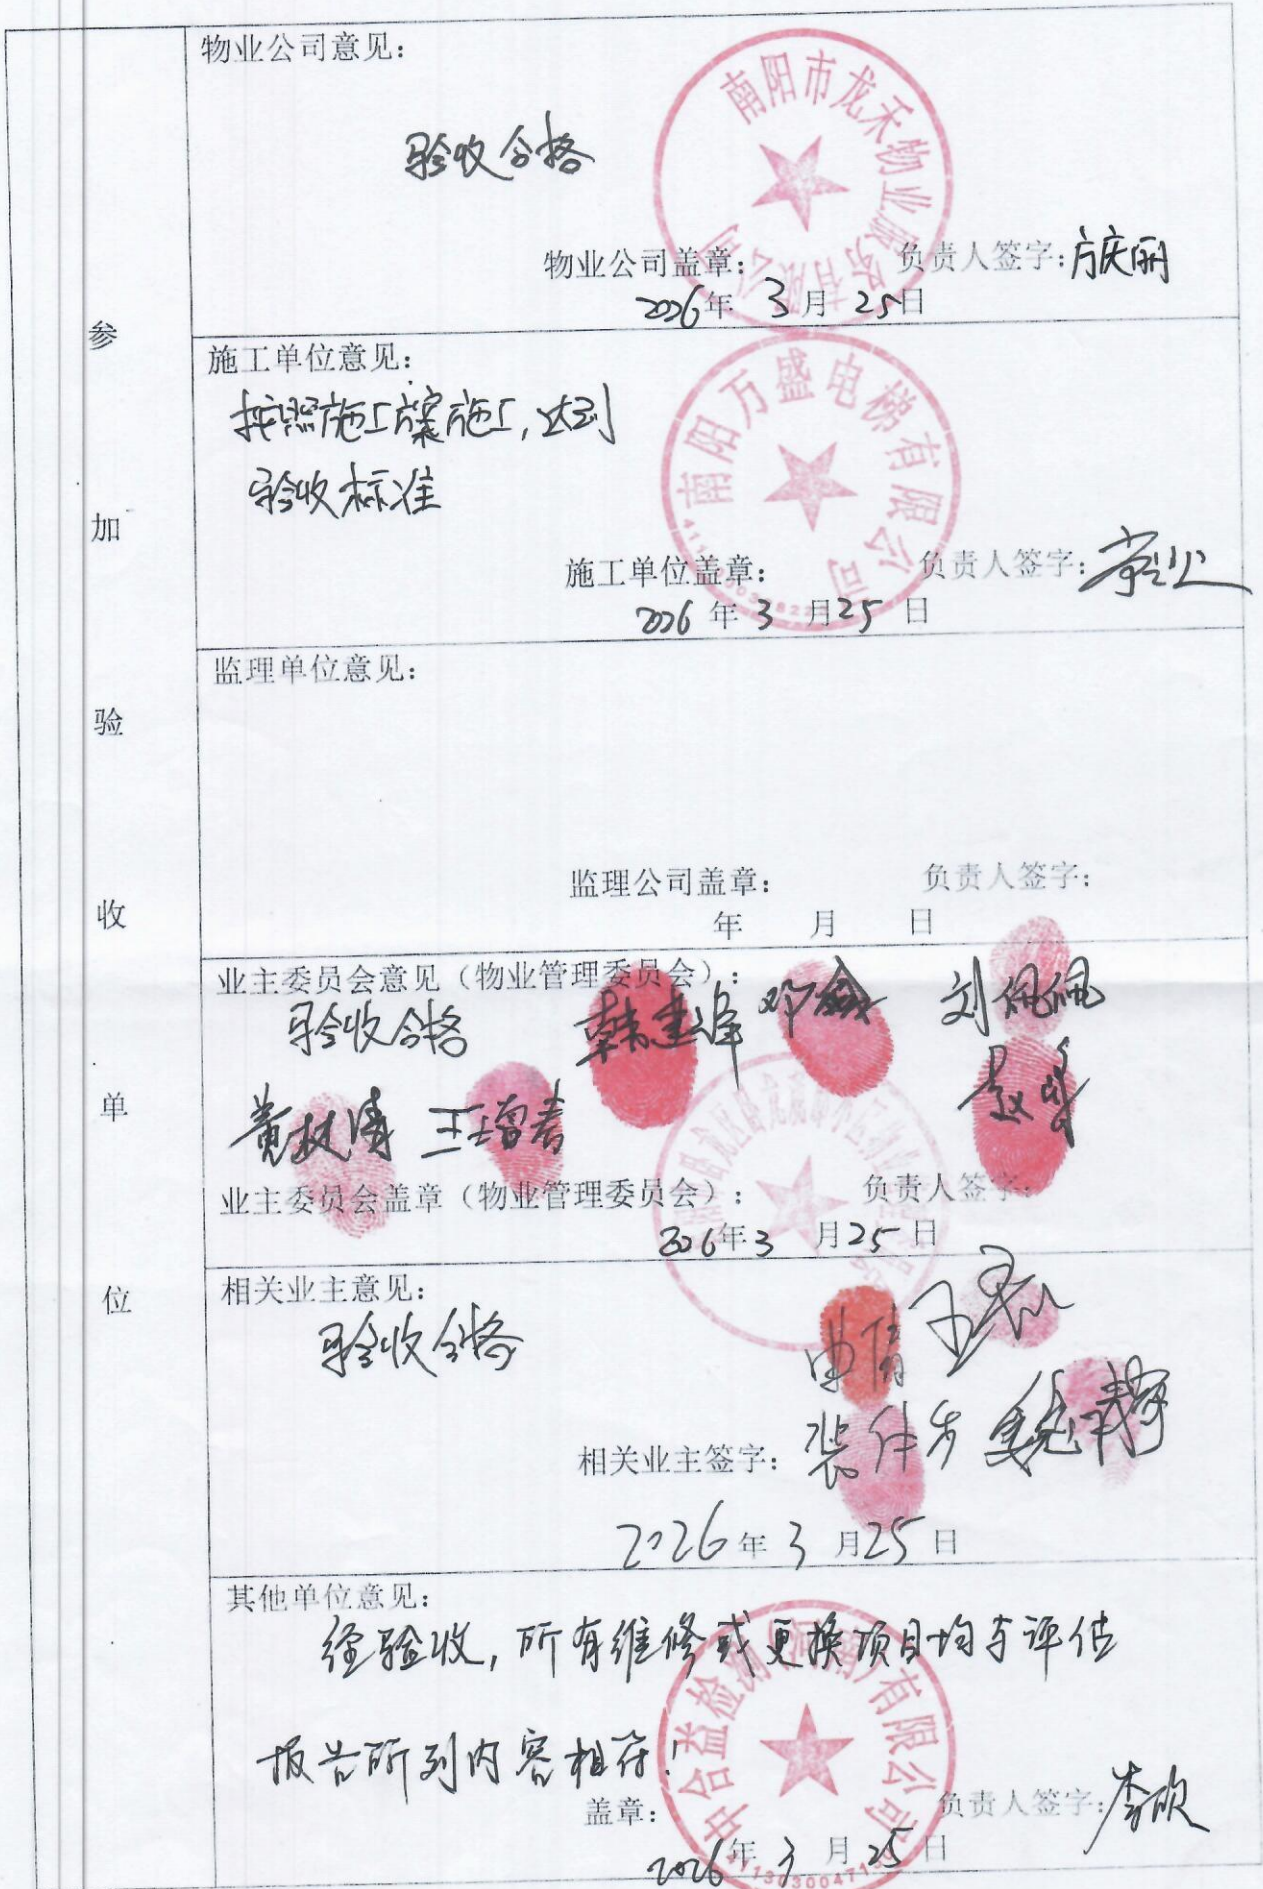 参加验收单位
物业公司意见：
验收合格
南阳市龙禾物业服务有限公司
物业公司盖章： 负责人签字：方庆丽
2026年 3月 25日
施工单位意见：
按照施工方案施工，达到
验收标准
南阳万盛电梯有限公司
施工单位盖章： 负责人签字：
2026年 3月25日
监理单位意见：
监理公司盖章： 负责人签字：
年 月 日
业主委员会意见（物业管理委员会）：
验收合格 韩建峰 邓鑫 刘佩佩
黄林涛 王增春 赵华
业主委员会盖章（物业管理委员会）： 负责人签字：
2026年3月25日
相关业主意见：
验收合格
曲倩
相关业主签字：裴仕步 魏静
2026年3月25日
其他单位意见：
经验收，所有维修或更换项目均与评估
报告所列内容相符！
中合益检测（河南）有限公司
盖章： 负责人签字：李欣
2026年3月25日